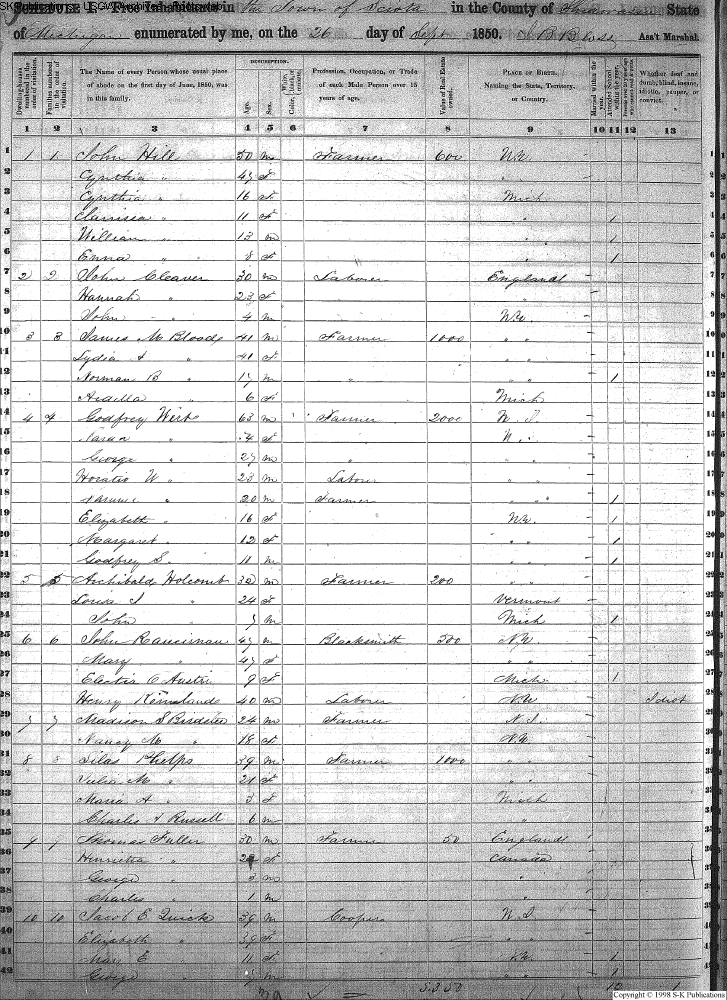 SCHEDULE I. Free Inhabitants in the Town of Sciota in the County of State
of Michigan enumerated by me, on the 26 day of Sept 1850. Ass't Marshal.
DESCRIPTION.
Dwelling-houses numbered in the order of visitation.
Families numbered in the order of visitation.
The Name of every Person whose usual place of abode on the first day of June, 1850, was in this family.
Age.
Sex.
Color,
Profession, Occupation, or Trade of each Male Person over 15 years of age.
Value of Real Estate owned.
PLACE OF BIRTH. Naming the State, Territory, or Country.
Married within the year.
Attended School within the year.
Whether deaf and dumb, blind, insane, idiotic, pauper, or convict.
1 2 3 4 5 6 7 8 9 10 11 12 13
1 1 1 John Hill 50 m Farmer 600 N.Y.
2 Cynthia " f "
3 Cynthia " 16 f Mich
4 Clarrisea " 11 f " 1
5 William " 13 m " 1
6 Emma " 8 f " 1
7 2 2 John Cleaver 30 m Laborer England
8 Hannah " 23 f "
9 John " 4 m N.Y.
10 3 3 James M Bloode 41 m Farmer 1000 " "
11 Lydia A " 41 f " "
12 Norman B " 17 m " " " 1
13 Ardilla " 6 f Mich
14 4 4 Godfrey Wirts 63 m Farmer 2000 N.J.
15 " f
16 George " 27 m " " "
17 Horatio W " 23 m Laborer
18 20 m Farmer " " 1
19 Elizabeth " 16 f N.Y. 1
20 Margaret " 12 f " " 1
21 Godfrey S. 11 m " " 1
22 5 5 Archibald Holcomb 32 m Farmer 200 " "
23 Louisa J " 24 f Vermont
24 John " 7 m Mich 1
25 6 6 John 47 m Blacksmith 500 N.Y.
26 Mary " 47 f " "
27 Electa C Austin 9 f Mich 1
28 Henry 40 m Laborer N.Y. Idiot
29 7 7 Madison S 24 m Farmer N.J.
30 Nancy M " 18 f N.Y.
31 8 8 Silas Phelps 29 m Farmer 1000 " "
32 Julia M " 21 f " "
33 Maria A " 3 f Mich
34 Charles A Russell 6 m "
35 9 9 Thomas Fuller 30 m Farmer 50 England
36 Henrietta " f Canada
37 George " 3 m "
38 Charles " 1 m "
39 10 10 Jacob E Quick 39 m Cooper N.J.
40 Elizabeth " 39 f " "
41 Mary E " 11 f N.Y. 1
42 George " m " 1
10 1
Copyright © 1998 S-K Publications